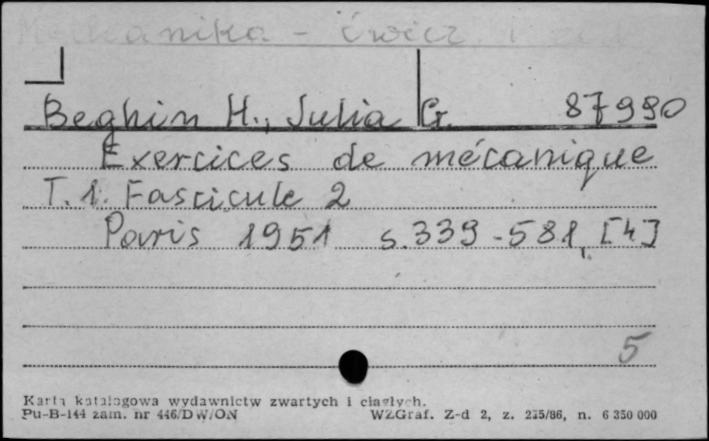 Mechanika - ćwicz. i zad.
Beghin H., Julia G. 87990
Exercices de mécanique
T. 1. Fascicule 2
Paris 1951 s. 339-581, [4]
5
Karta katalogowa wydawnictw zwartych i ciągłych.
Pu-B-144 zam. nr 446/DW/ON WZGraf. Z-d 2, z. 235/86, n. 6 350 000